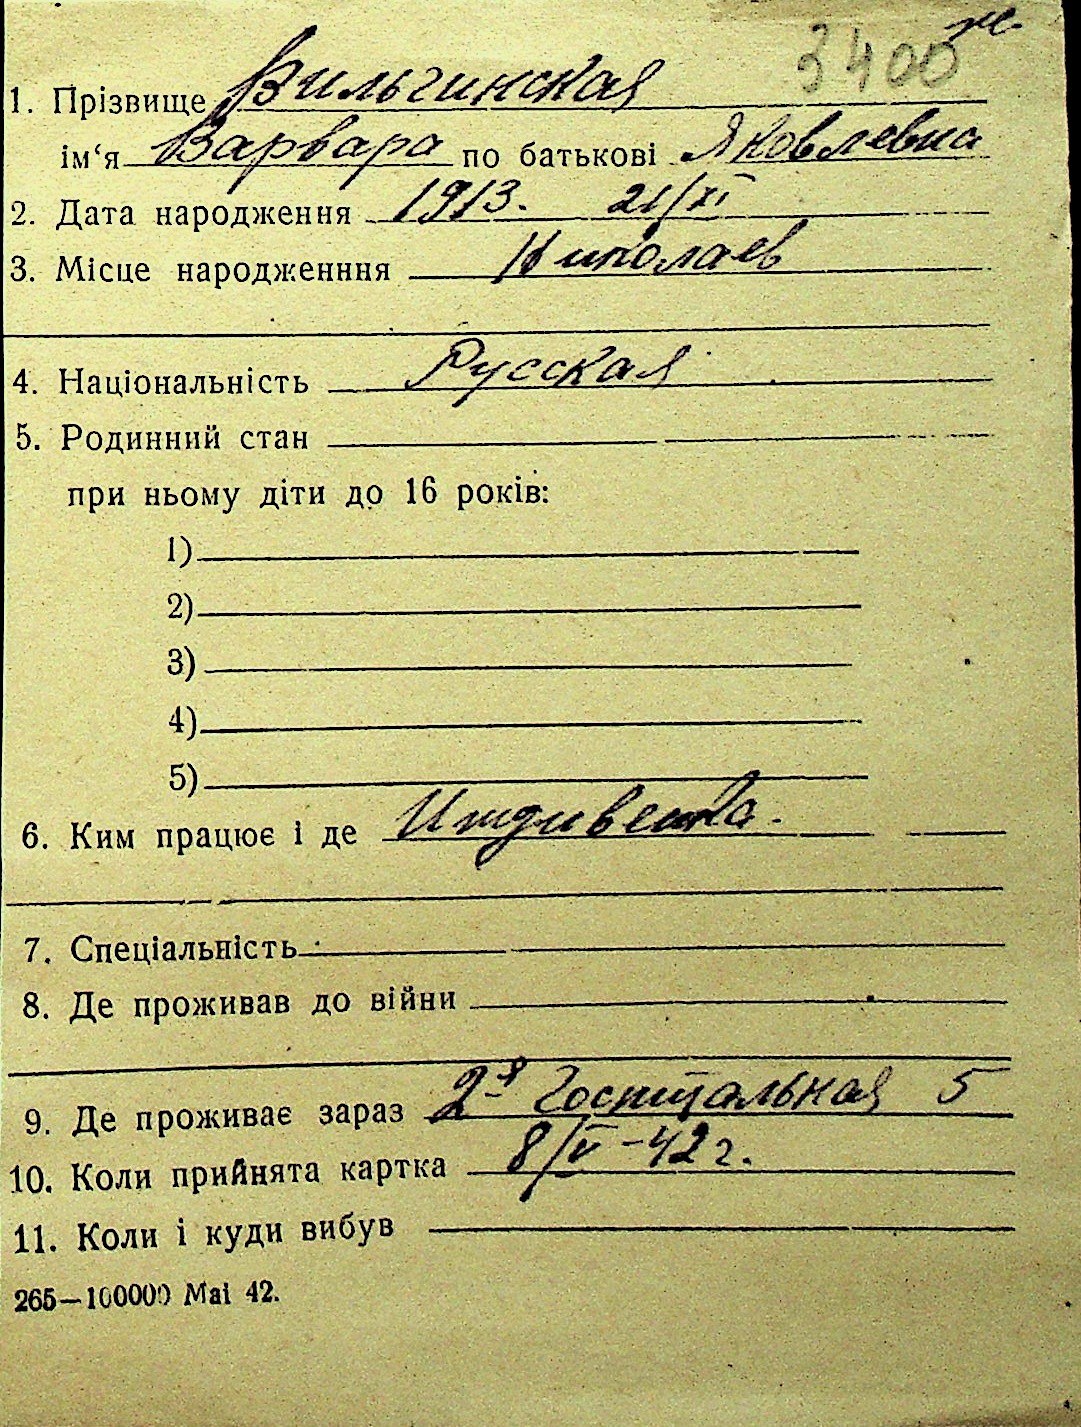 3400
1. Прізвище Вильгинская
ім‘я Варвара по батькові Яковлевна
2. Дата народження 1913. 21/XI
3. Місце народженння Николаев
4. Національність Русская
5. Родинний стан
при ньому діти до 16 років:
1)
2)
3)
4)
5)
6. Ким працює і де Иждивента.
7. Спеціальність
8. Де проживав до війни
9. Де проживає зараз 2-я Госпитальная 5
10. Коли прийнята картка 8/V-42 г.
11. Коли і куди вибув
265—100000 Mai 42.